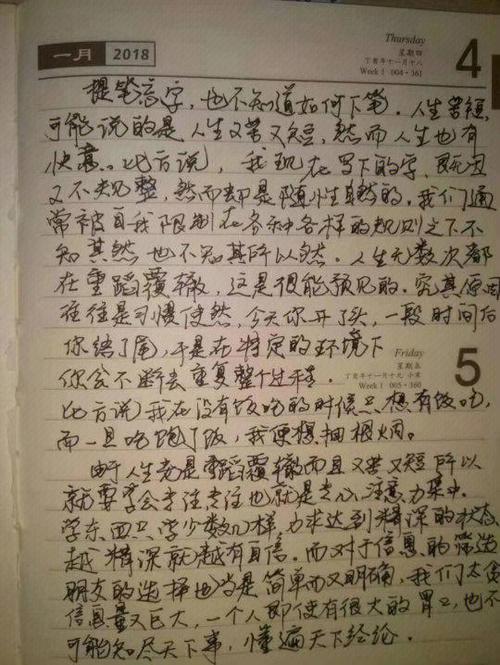 一月 2018
Thursday
星期四
丁酉年十一月十八
Week 1 004-361
4
提笔忘字，也不知道如何下笔．人生苦短，
可能说的是人生又苦又短，然而人生也有
快意。比方说，我现在写下的字，既丑
又不规整，然而却是随性自然的．我们通
常被自我限制在各种各样的规则之下不
知其然也不知其所以然．人生无数次都
在重蹈覆辙，这是很能预见的．究其原因
往往是习惯使然，今天你开了头，一段时间后
你结了尾，于是在特定的环境下
你会不断去重复整个过程．
Friday
星期五
丁酉年十一月十九 小寒
Week 1 005-360
5
比方说，我在没有饭吃的时候只想有饭吃，
而一旦吃饱了饭，我便想抽根烟。
由于人生老是重蹈覆辙而且又苦又短所以
就要学会专注专注也就是专心注意力集中．
学东西只学少数几样，力求达到精深的状态
越精深就越有自信．而对于信息的筛选
朋友的选择也当是简单而又明确，我们
信息量又巨大，一个人即使有很大的胃口，也不
可能知尽天下事，懂遍天下经纶．